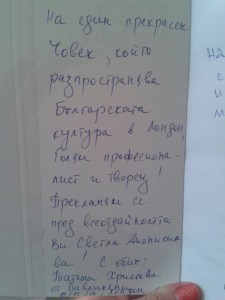 На един прекрасен
човек, който
разпространява
Българската
култура в Лондон,
Голям професиона-
лист и творец!
Прекланям се
пред всеотдайността
Ви Светла Дионисие
ва! С обич:
Татяна Христова
от